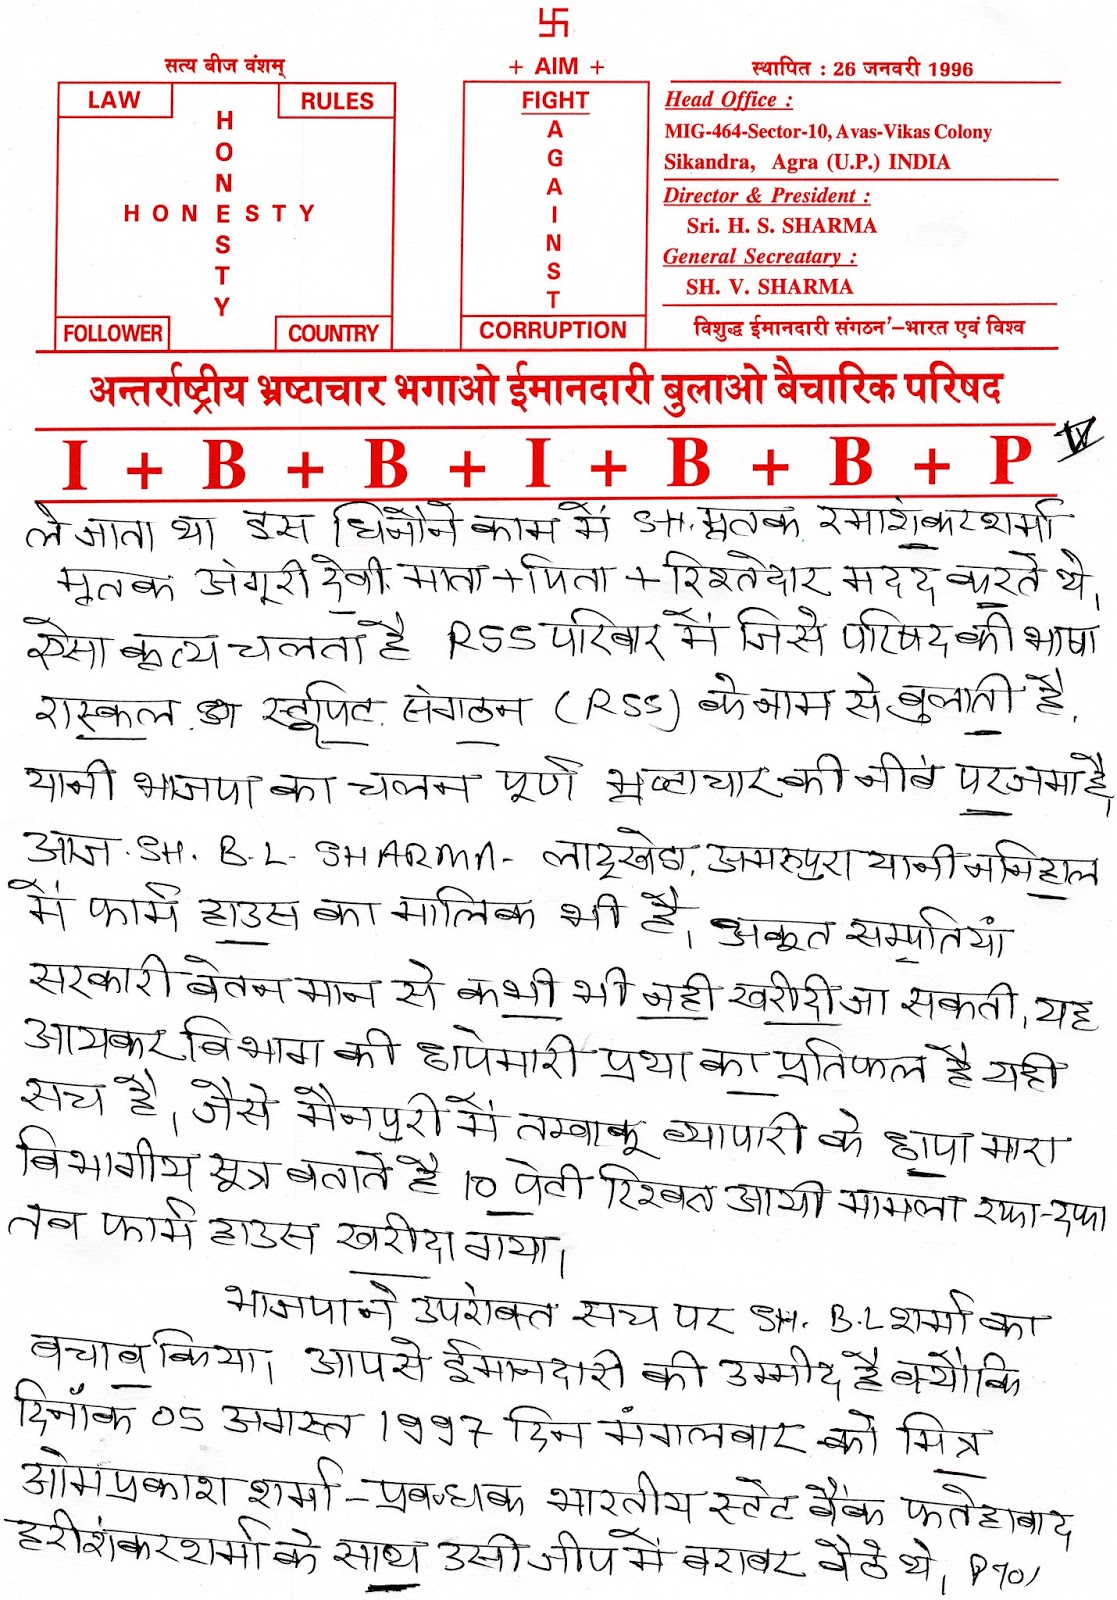 卐
सत्य बीज वंशम्
LAW
RULES
HONESTY
HONESTY
FOLLOWER
COUNTRY
+ AIM +
FIGHT
AGAINST
CORRUPTION
स्थापित : 26 जनवरी 1996
Head Office :
MIG-464-Sector-10, Avas-Vikas Colony
Sikandra, Agra (U.P.) INDIA
Director & President :
Sri. H. S. SHARMA
General Secreatary :
SH. V. SHARMA
विशुद्ध ईमानदारी संगठन'–भारत एवं विश्व
अन्तर्राष्ट्रीय भ्रष्टाचार भगाओ ईमानदारी बुलाओ बैचारिक परिषद
I + B + B + I + B + B + P
ले जाता था इस घिनौने काम में SH. मृतक रमाशंकर शर्मा
मृतक अंगूरी देवी माता + पिता + रिश्तेदार मदद करते थे,
ऐसा कृत्य चलता है RSS परिबार में जिसे परिषद की भाषा
रास्कल स्टूपिट संगठन (RSS) के नाम से बुलाती है,
यानी भाजपा का चलन पूर्ण भ्रष्टाचार की नीबं पर जमा है,
आज SH. B.L. SHARMA - लादूखेडा, अमरपुरा यानी ननिहाल
में फार्म हाउस का मालिक भी है, अकूत सम्पतियां
सरकारी बेतन मान से कभी भी नही खरीदी जा सकती, यह
आयकर बिभाग की छापेमारी प्रथा का प्रतिफल है यही
सच है, जैसे मैनपुरी में तम्बाकू व्यापारी के छापा मारा
बिभागीय सूत्र बताते है 10 पेटी रिश्बत आयी मामला रफा-दफा
तब फार्म हाउस खरीदा गया।
भाजपा ने उपरोक्त सच पर SH. B.L शर्मा का
बचाब किया, आपसे ईमानदारी की उम्मीद है क्यौकि
दिनाँक 05 अगस्त 1997 दिन मंगलबार को मित्र
ओमप्रकाश शर्मा - प्रबन्धक भारतीय स्टेट बैंक फतेहाबाद
हरीशंकर शर्मा के साथ उसी जीप में बराबर बैठे थे,